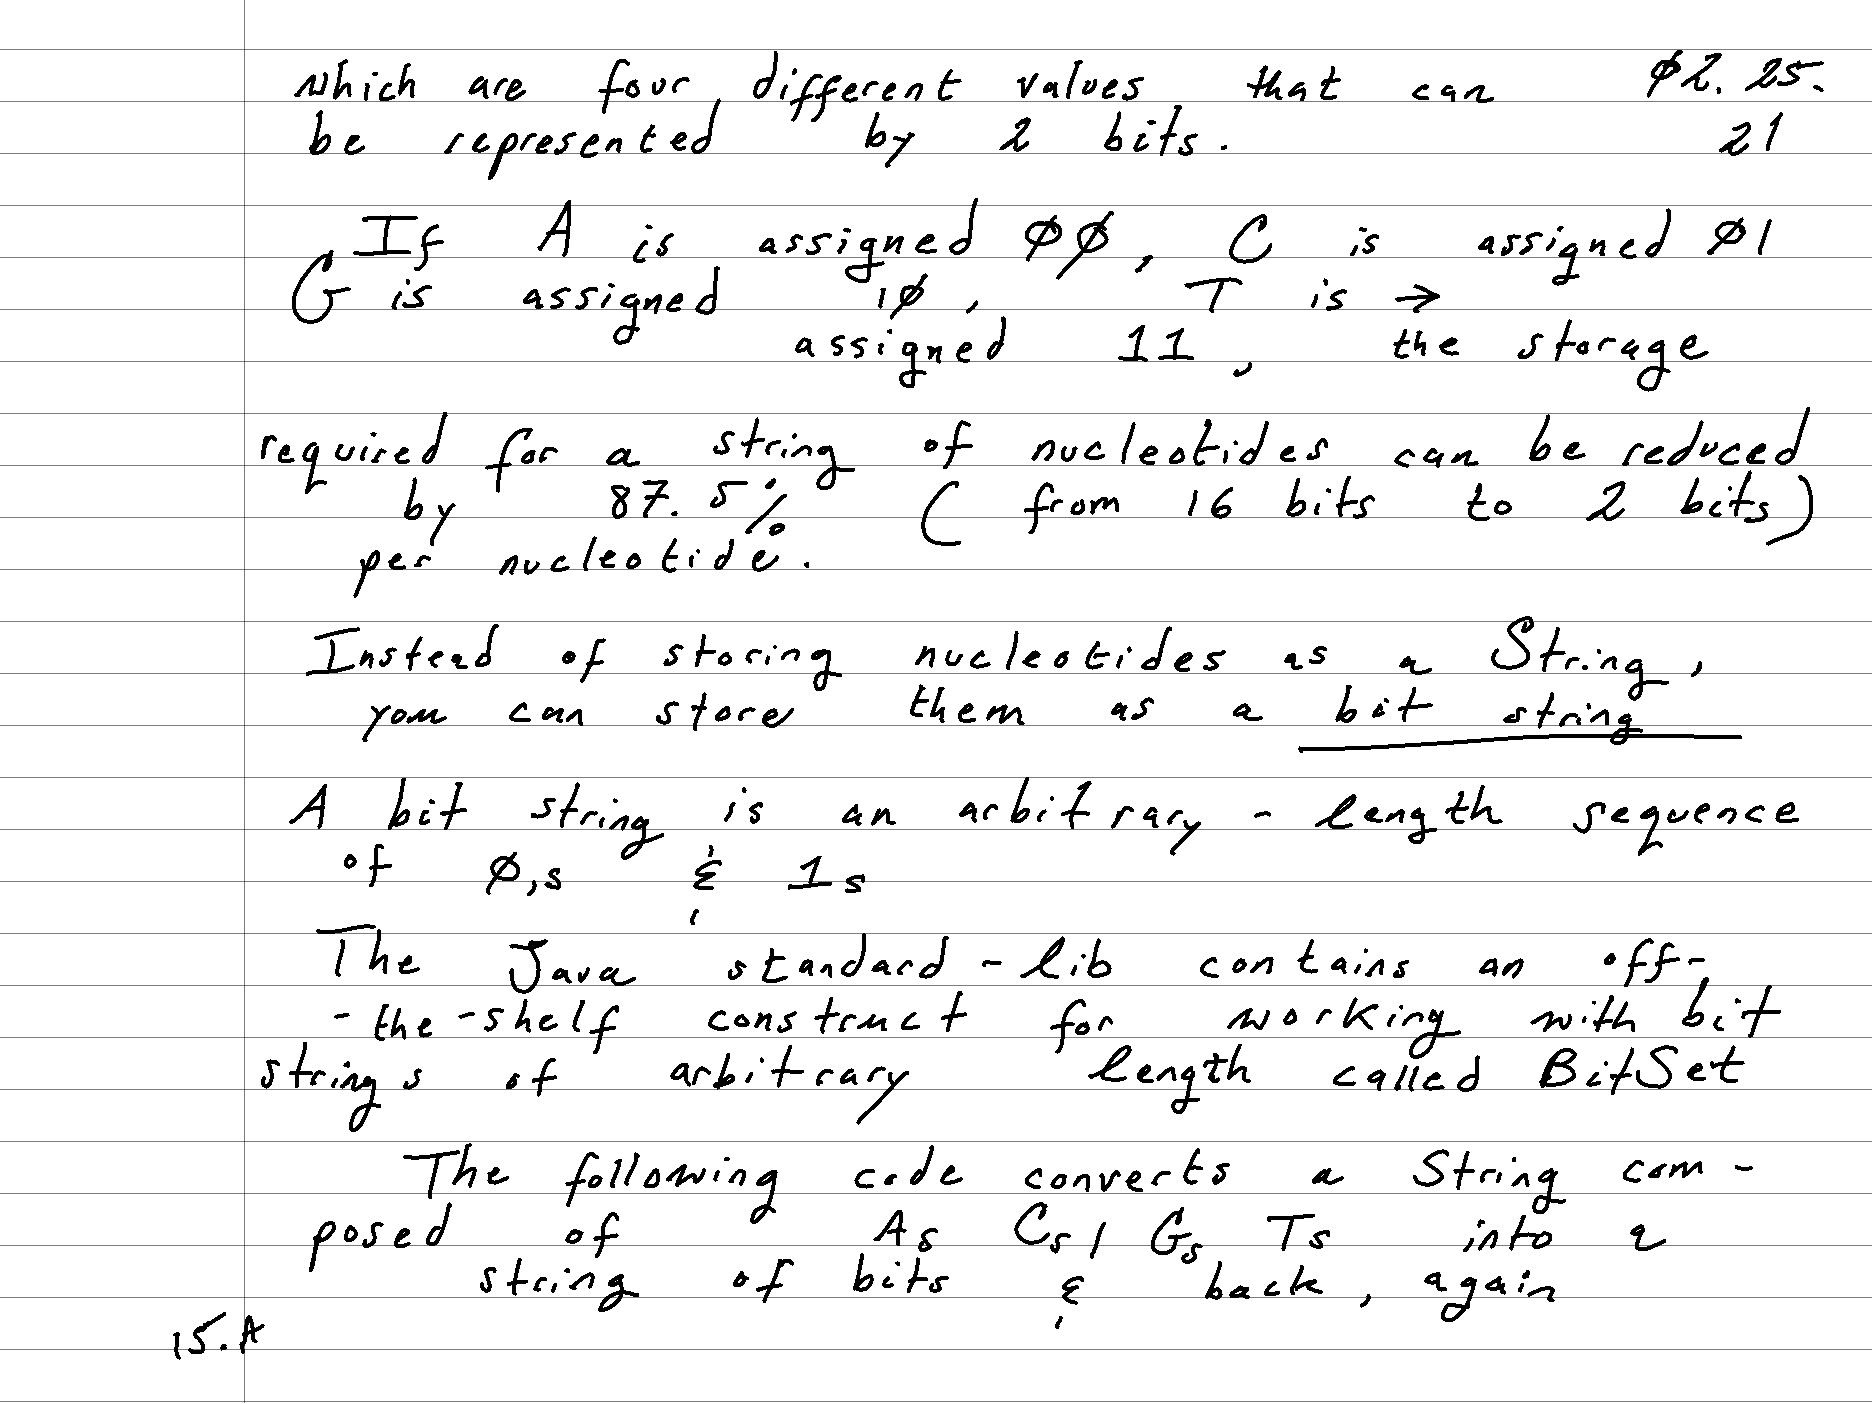 which are four different values that can Ø2. 25.
be represented by 2 bits. 21
If A is assigned ØØ, C is assigned Ø1
G is assigned 1Ø, T is →
assigned 11, the storage
required for a string of nucleotides can be reduced
by 87.5% (from 16 bits to 2 bits)
per nucleotide.
Instead of storing nucleotides as a String,
you can store them as a bit string
A bit string is an arbitrary-length sequence
of Ø,s & 1s
The Java standard-lib contains an off-
-the-shelf construct for working with bit
strings of arbitrary length called BitSet
The following code converts a String com-
posed of As Cs, Gs Ts into a
string of bits & back, again
15.A